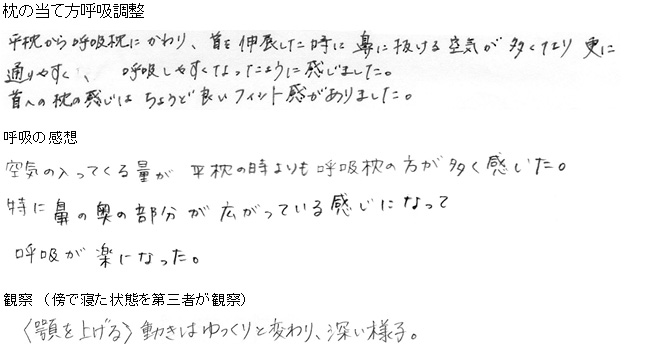 枕の当て方呼吸調整
平枕から呼吸枕にかわり、首を伸展した時に鼻に抜ける空気が多くなり更に
通りやすく、呼吸しやすくなったように感じました。
首への枕の感じはちょうど良いフィット感がありました。
呼吸の感想
空気の入ってくる量が平枕の時よりも呼吸枕の方が多く感じた。
特に鼻の奥の部分が広がっている感じになって
呼吸が楽になった。
観察（傍で寝た状態を第三者が観察）
〈顎を上げる〉動きはゆっくりと変わり、深い様子。